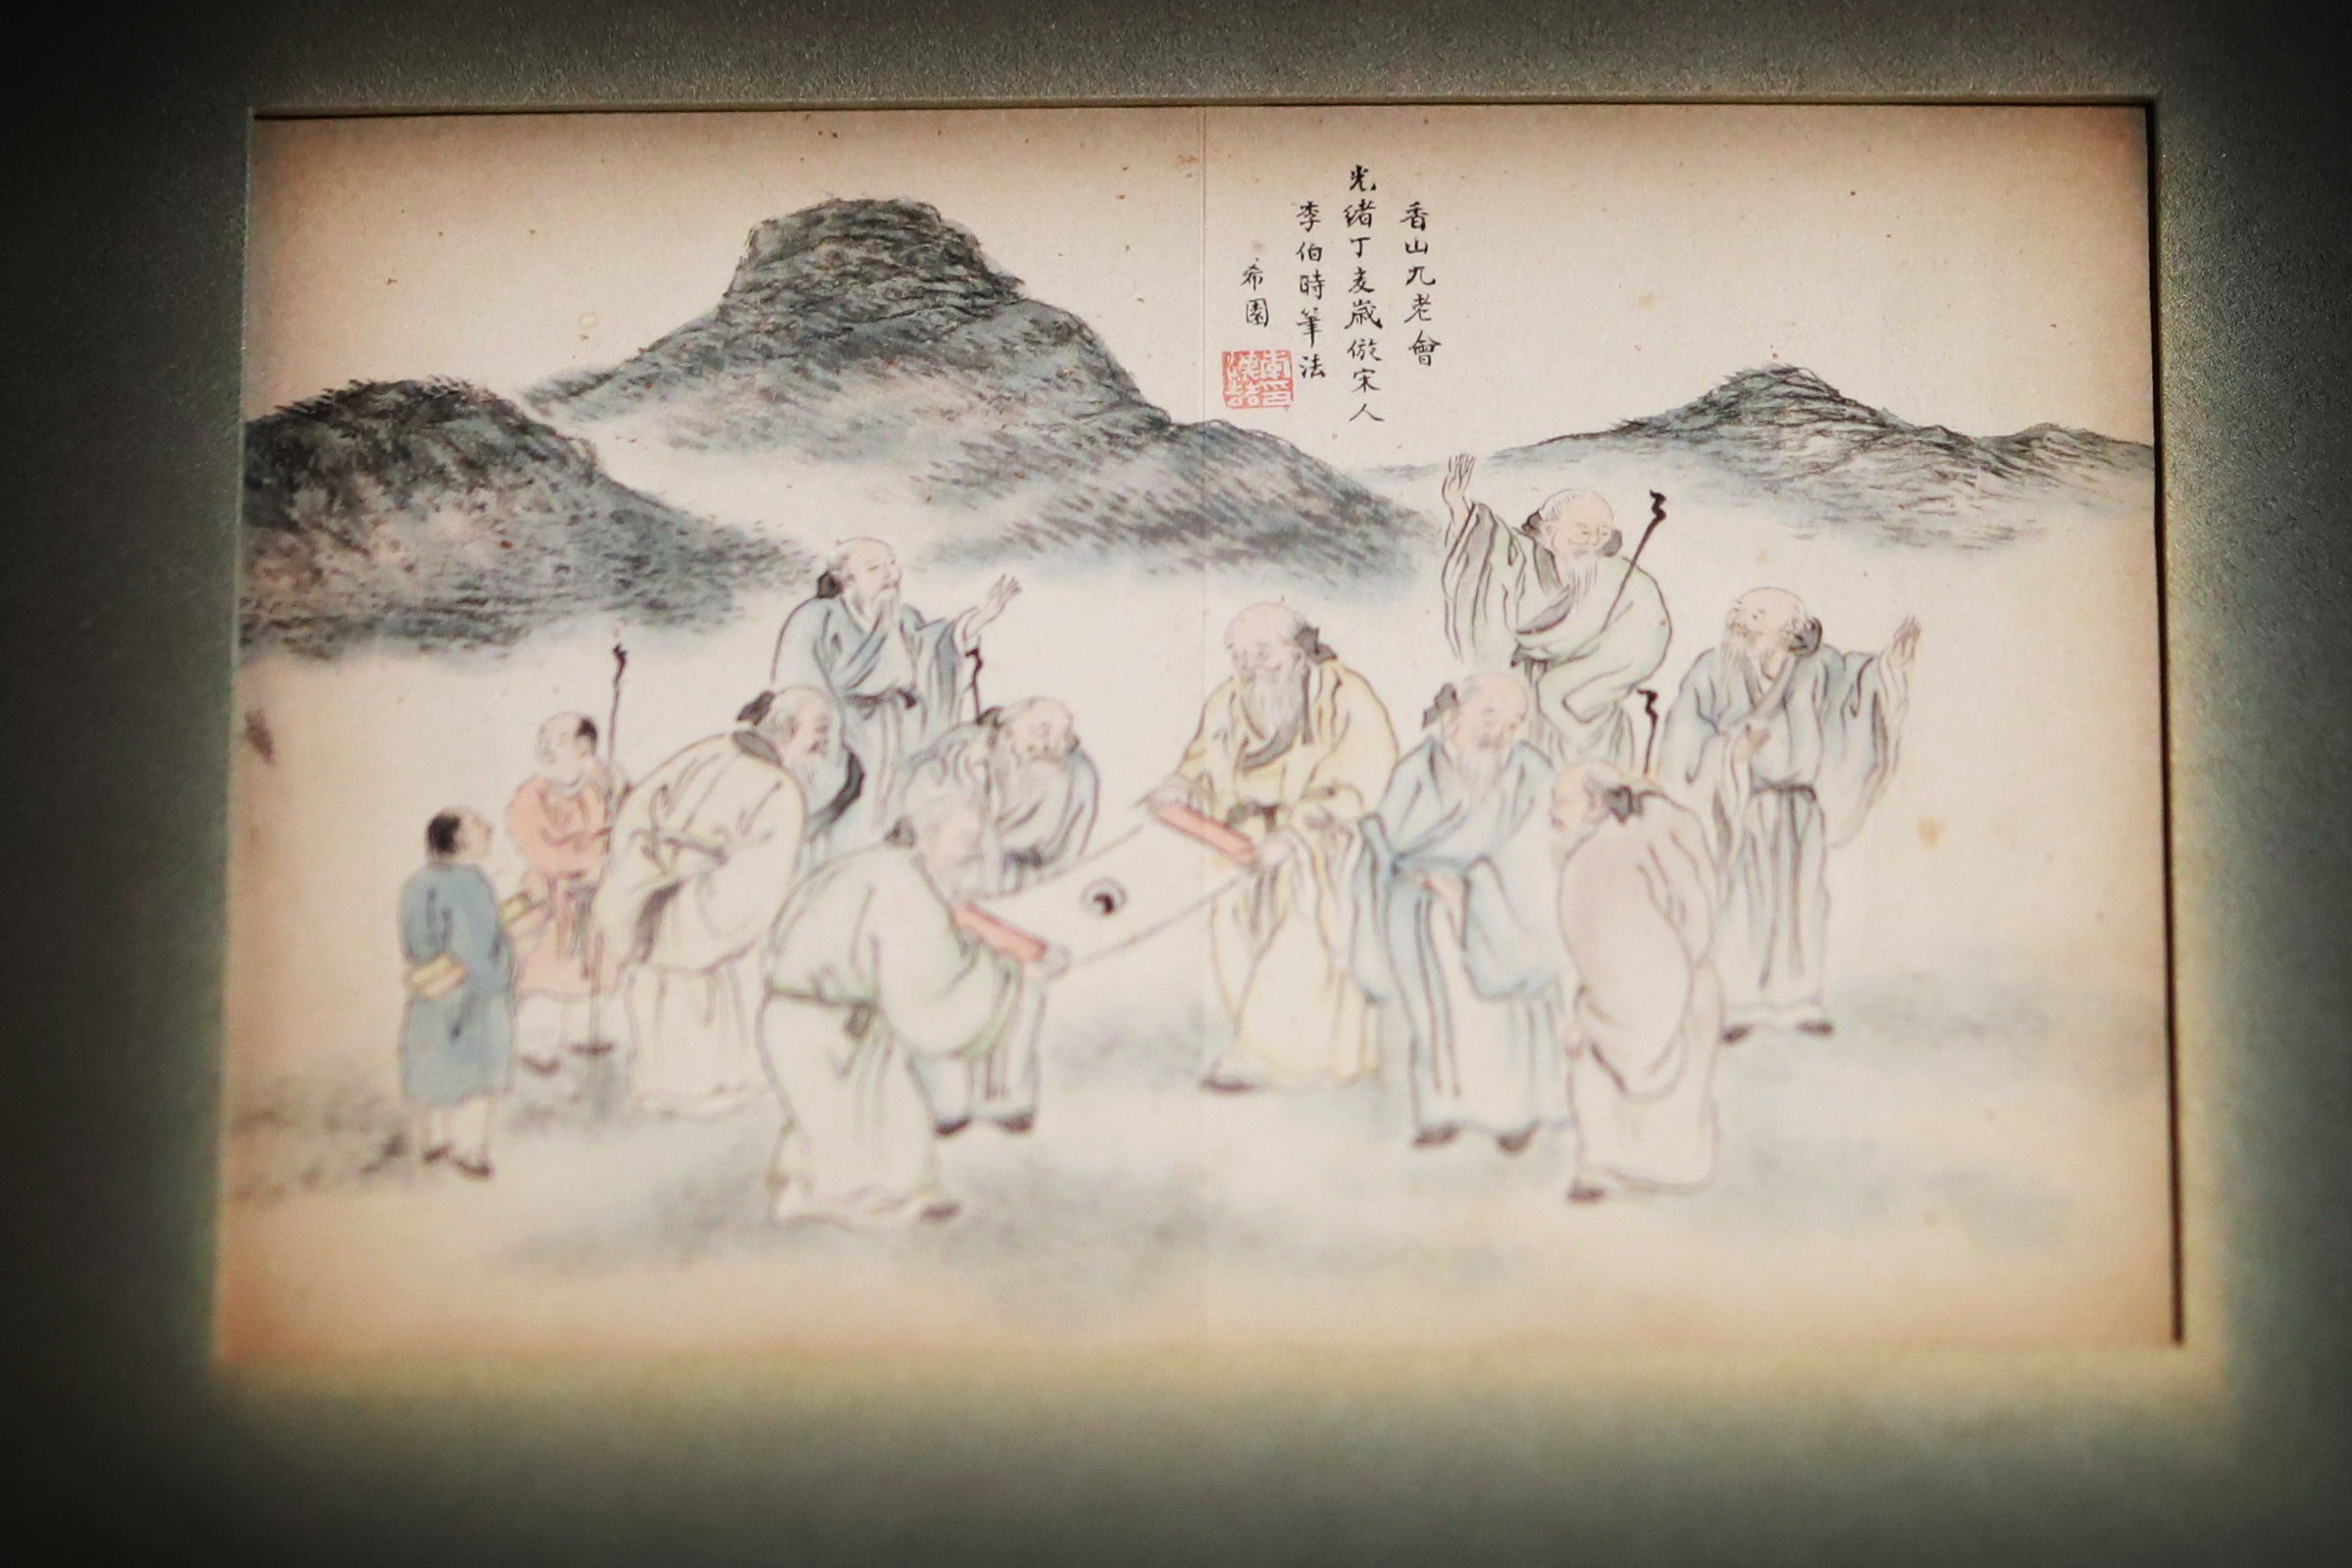 香山九老會
光緒丁亥歲倣宋人
李伯時筆法
希園